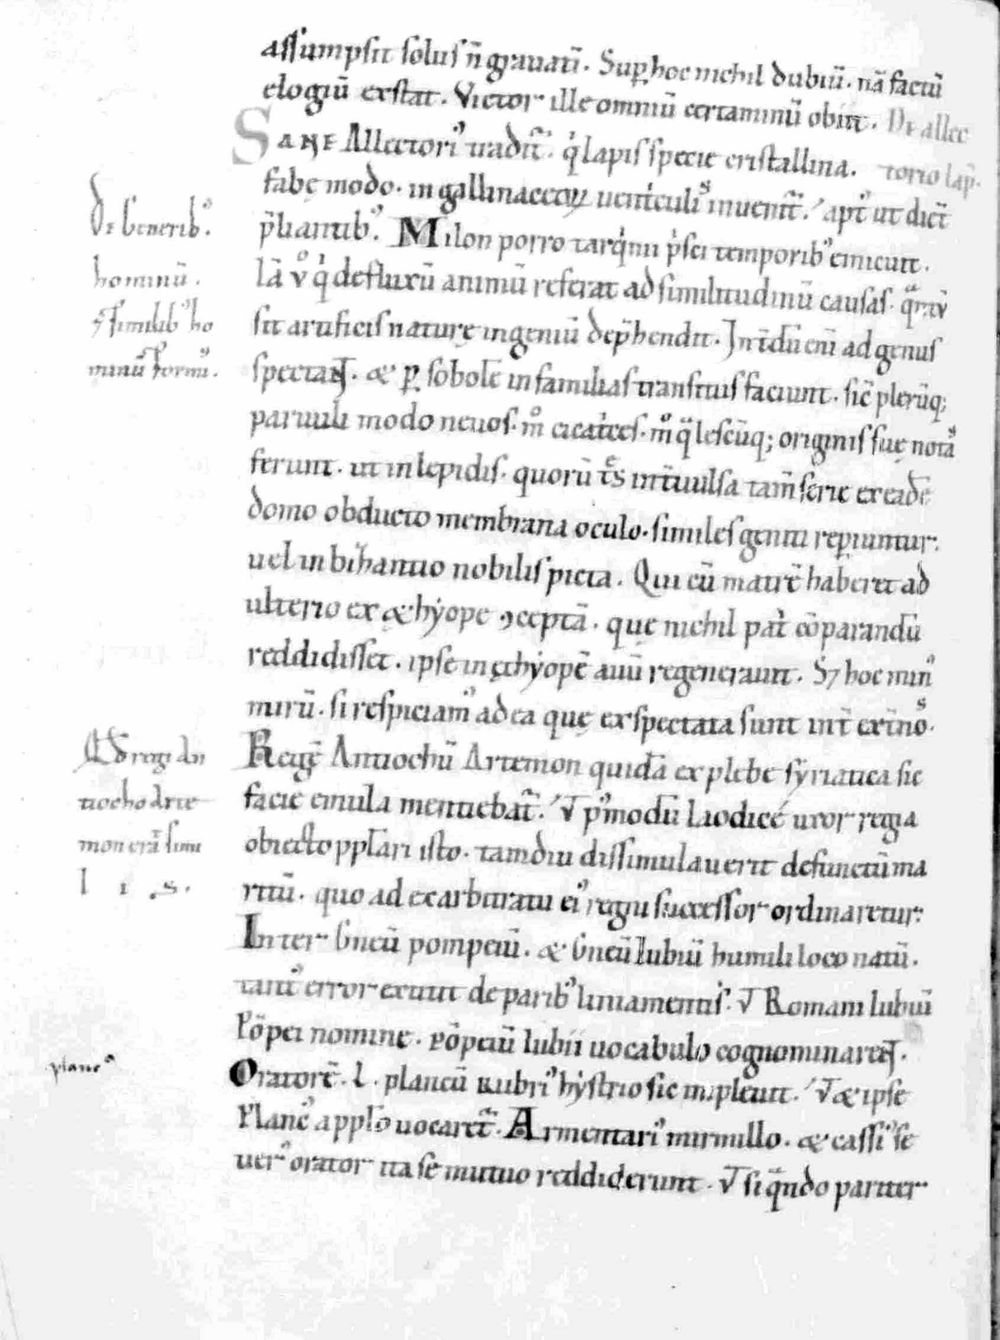 assumpsit solus n̄ gravatī. Sup hoc nichil dubiū. nā factū
elogiū exstat. Victor ille omniū certaminū obiit. De allec
Sane Allectori᾿ tradit᷑. q̇ lapis specie cristallina. torio lap̄.
fabę modo. in gallinaceoꝝ uent̓culis inuenit᷑. apt᾿ ut dict̄
p̄liantib᾿. Milon porro tarq̓nii p̓sci temporib᾿ emicuit.
De generib᾿.
Iā v̊ q̓ defluxū animū referat ad similitudinū causas. quātū
hominū.
sit artificis naturę ingeniū dep̄hendit. Int̄dū eni ad genus
⁊ similib᾿ ho
spectant. & ꝑ sobolē in familias transitus faciunt. sic̄ plerūq;
minū formis.
paruuli modo neuos. m̊ cicat̓ces. m̊ q̄lescūq; originis suę notas
ferunt. ut in lepidis. quorū t̄s int̄uulsa tam̄ serie ex eadē
domo obducto membrana oculo. similes geniti repiuntur.
uel in bizantio nobilis picta. Qui cū matrē haberet ad
ulterio ex æthyope ꝯceptā. quę nichil pat̓ cōparandū
reddidisset. ipse in ęthyopē auū regenerauit. Sꝫ hoc min᾿
mirū. si respiciam᾿ ad ea quę exspectata sunt int̄ ext̄nos.
Regē Antiochū Artemon quidā ex plebe syriatica sic
Qd regi An
facie emula mentiebat᷑. ut p᾿modū Laodice uxor regia
tiocho Arte
obiecto pplari isto. tamdiu dissimulauerit defunctū ma
mon erat simi
ritū. quo ad ex arbitratu ei᾿ regni successor ordinaretur.
l i s.
Inter Gneū pompeiū. & Gneū lubiū humili loco natū.
tant᾿ error extitit de parib᾿ liniamentis. ut Romani lubiū
Pōpei nomine. Pōpeiū lubii uocabulo cognominarent.
Oratorē. l. plancū rubri᾿ hystrio sic impleuit. ut & ipse
planc᾿
Planc᾿ a pplo uocaret᷑. Armentari᾿ mirmillo. & cassi᾿ se
uer᾿ orator ita se mutuo reddiderunt. ut si q̄ndo pariter